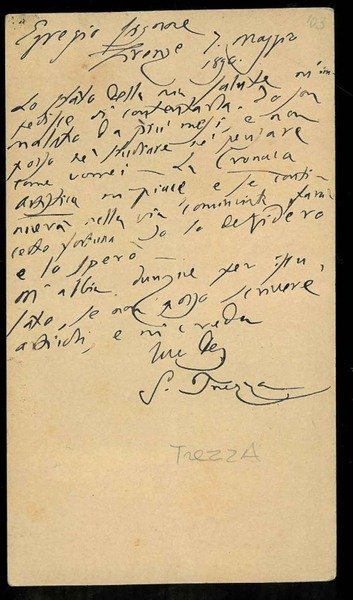 103
Egregio Signore
Firenze 7. Maggio
1890.
Lo stato della mia salute m'im-
pedisce di contentarla. Io son
malato da più mesi e non
posso nè studiare nè pensare
come vorrei — La Cronaca
artistica mi piace e se conti-
nuerà nella via cominciata farà
certo fortuna. Io lo desidero
e lo spero —
M'abbia dunque per iscu-
sato, se non posso scrivere
articoli, e mi creda
Suo
G. Trezza
TrezzA